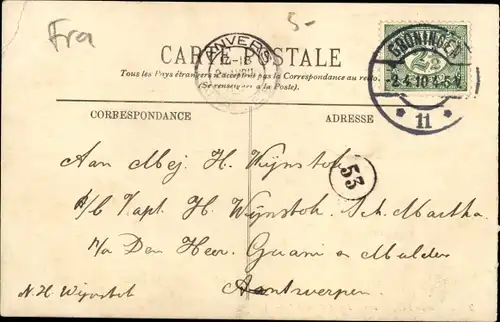 Fra
5-
CARTE POSTALE
Tous les Pays étrangers n'acceptent pas la Correspondance au recto.
(Se renseigner à la Poste).
ANVERS
GRONINGEN
2½
2.4.10 4-5 V
* 11 *
CORRESPONDANCE
ADRESSE
53
Aan Mej. H. Wijnstok
a/b Kapt. H. Wijnstok. Sch. Martha
p/a Den Heer. Guani en Mulder
Antwerpen.
N.H. Wijnstok